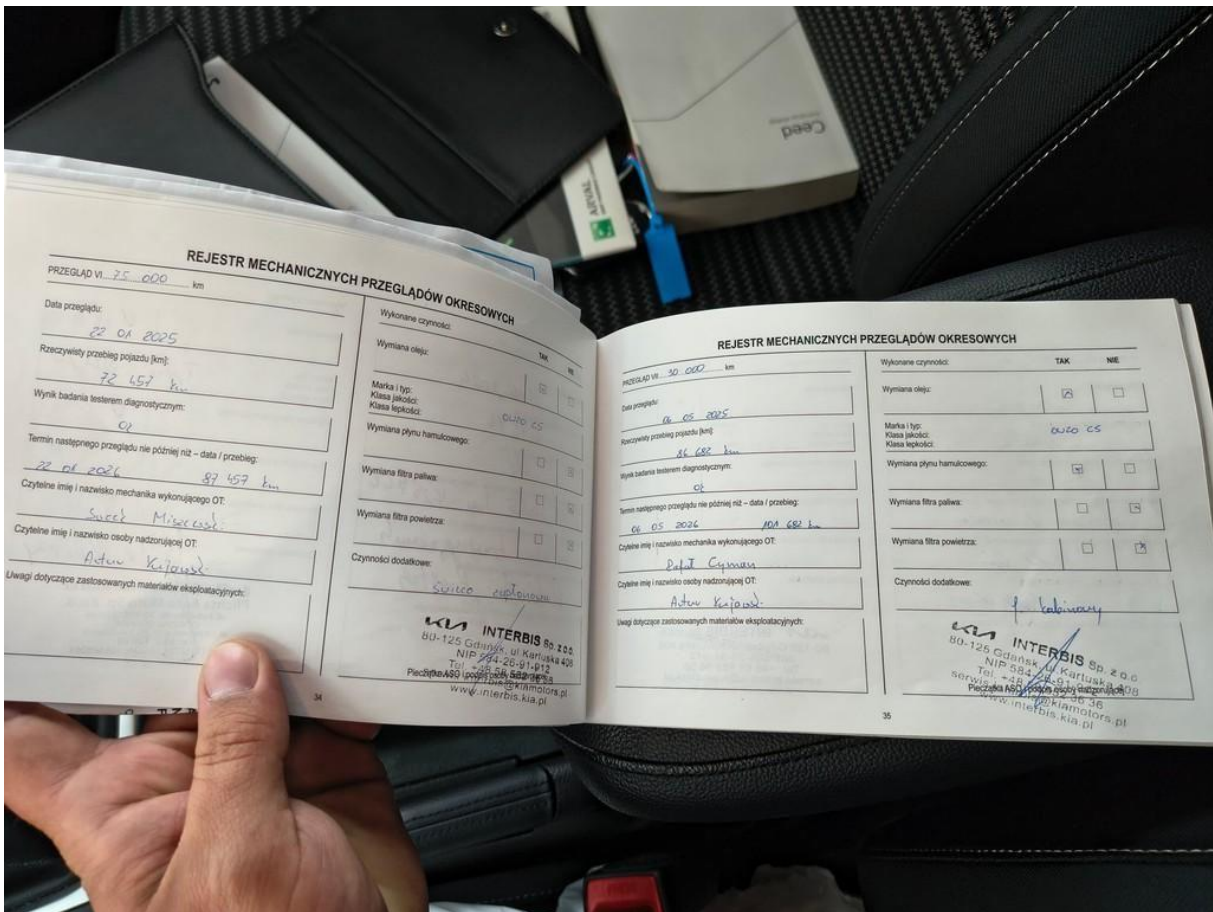 Ceed
ARVAL
REJESTR MECHANICZNYCH PRZEGLĄDÓW OKRESOWYCH
PRZEGLĄD VI 75 000 km
Data przeglądu:
22 01 2025
Rzeczywisty przebieg pojazdu [km]:
72 457 km
Wynik badania testerem diagnostycznym:
Termin następnego przeglądu nie później niż – data / przebieg:
22 01 2026 87 457 km
Czytelne imię i nazwisko mechanika wykonującego OT:
Czytelne imię i nazwisko osoby nadzorującej OT:
Artur
Uwagi dotyczące zastosowanych materiałów eksploatacyjnych:
Wykonane czynności:
TAK NIE
Wymiana oleju:
Marka i typ:
Klasa jakości:
Klasa lepkości:
0W20 C5
Wymiana płynu hamulcowego:
Wymiana filtra paliwa:
Wymiana filtra powietrza:
Czynności dodatkowe:
KIA INTERBIS Sp. z o.o.
80-125 Gdańsk, ul. Kartuska 408
NIP 584-26-91-912
Pieczątka ASO i podpis osoby nadzorującej
www.interbis.kia.pl
34
REJESTR MECHANICZNYCH PRZEGLĄDÓW OKRESOWYCH
PRZEGLĄD VII 90 000 km
Data przeglądu:
06 05 2025
Rzeczywisty przebieg pojazdu [km]:
86 682 km
Wynik badania testerem diagnostycznym:
Termin następnego przeglądu nie później niż – data / przebieg:
06 05 2026 101 682 km
Czytelne imię i nazwisko mechanika wykonującego OT:
Rafał Cyman
Czytelne imię i nazwisko osoby nadzorującej OT:
Artur
Uwagi dotyczące zastosowanych materiałów eksploatacyjnych:
Wykonane czynności:
TAK NIE
Wymiana oleju:
Marka i typ:
Klasa jakości:
Klasa lepkości:
0W20 C5
Wymiana płynu hamulcowego:
Wymiana filtra paliwa:
Wymiana filtra powietrza:
Czynności dodatkowe:
f. kabinowy
KIA INTERBIS Sp. z o.o.
80-125 Gdańsk, ul. Kartuska 408
Pieczątka ASO i podpis osoby nadzorującej
www.interbis.kia.pl
35